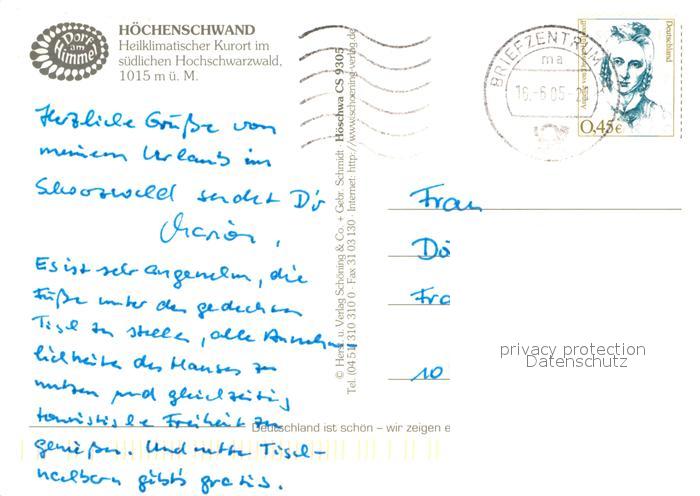 Dorf am Himmel
HÖCHENSCHWAND
Heilklimatischer Kurort im
südlichen Hochschwarzwald,
1015 m ü. M.
Herzliche Grüße von
meinem Urlaub im
Schwarzwald sendet Dir
Marion,
Es ist sehr angenehm, die
Füße unter den gedeckten
Tisch zu stellen, alle Annehm
lichkeiten des Hauses zu
nutzen und gleichzeitig
touristische Freiheit zu
genießen. Und nette Tisch-
nachbarn gibt's gratis.
© Herst. u. Verlag Schöning & Co. + Gebr. Schmidt · Höschwa CS 9305
Tel. (04 51) 310 310 0 · Fax 31 03 130 · Internet: http://www.schoening-verlag.de
Deutschland ist schön – wir zeigen e
BRIEFZENTRUM
ma
16.-6.05-2
Deutschland
0,45€
Frau
Dö
Fra
10
privacy protection
Datenschutz